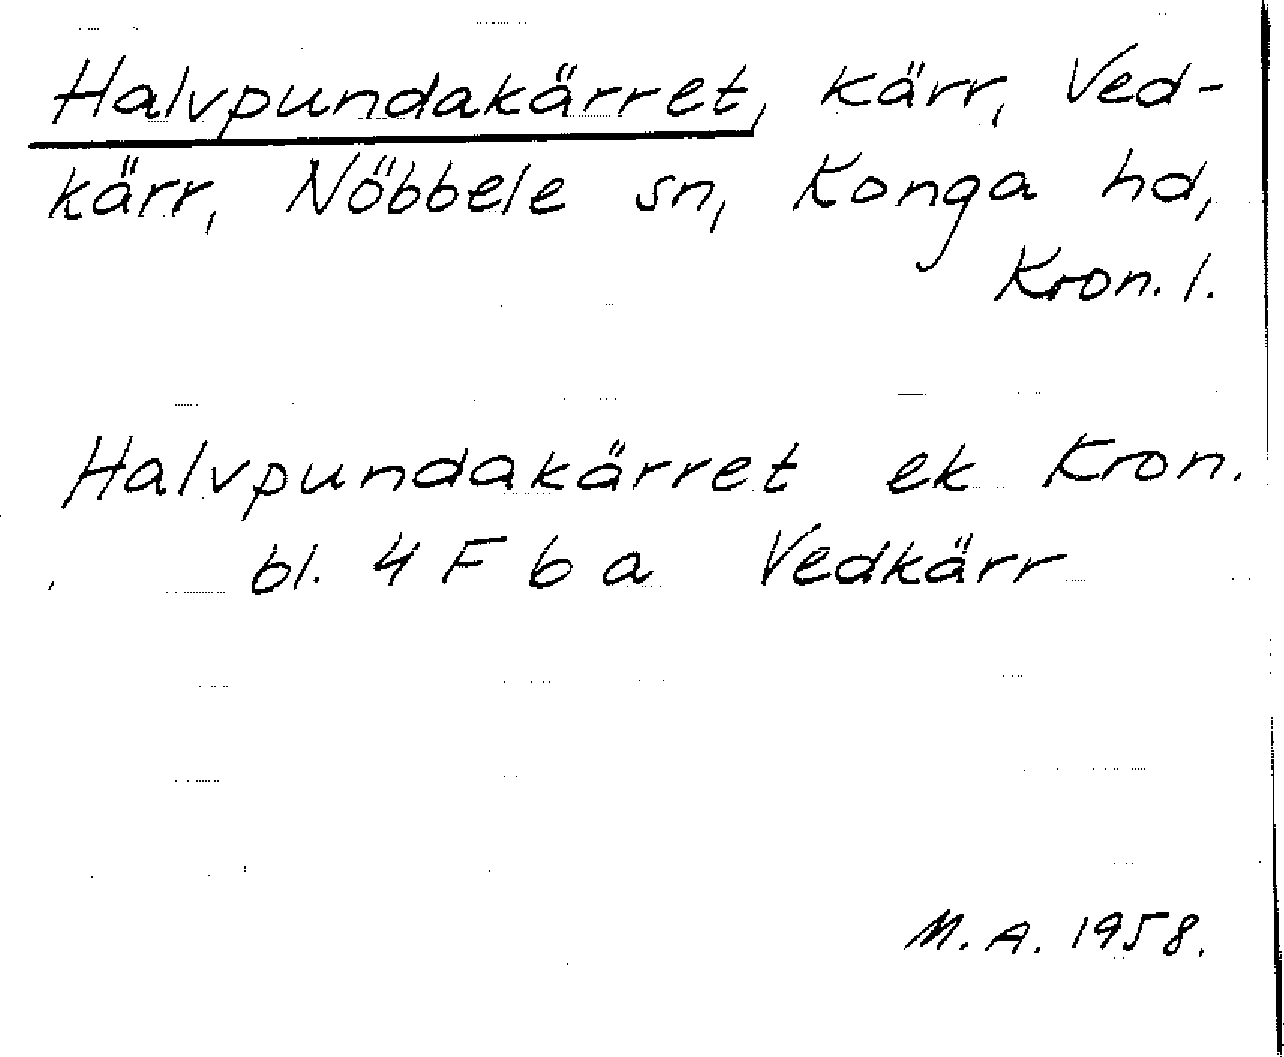 Halvpundakärret, kärr, Ved-
kärr, Nöbbele sn, Konga hd,
Kron. l.
Halvpundakärret ek Kron.
bl. 4 F b a Vedkärr
M. A. 1958.